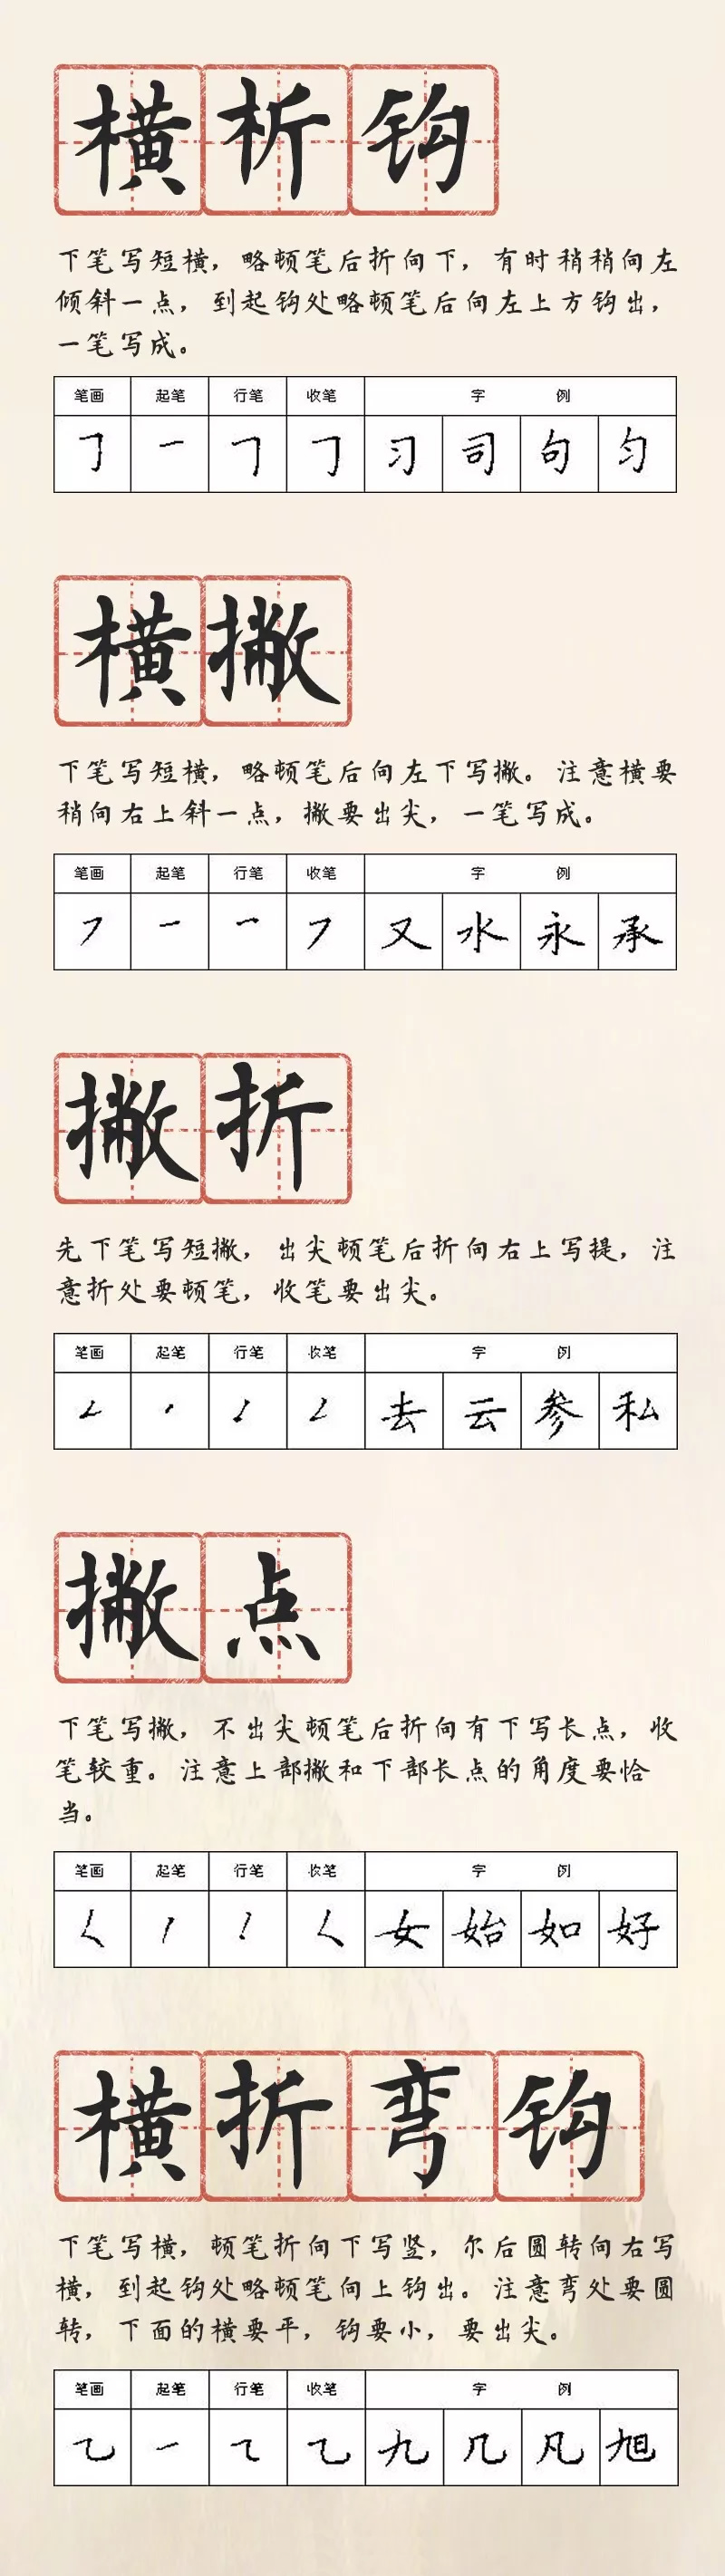 横析钩
下笔写短横，略顿笔后折向下，有时稍稍向左
倾斜一点，到起钩处略顿笔后向左上方钩出，
一笔写成。
笔画 起笔 行笔 收笔 字 例
习 司 句 匀
横撇
下笔写短横，略顿笔后向左下写撇。注意横要
稍向右上斜一点，撇要出尖，一笔写成。
笔画 起笔 行笔 收笔 字 例
又 水 永 承
撇折
先下笔写短撇，出尖顿笔后折向右上写提，注
意折处要顿笔，收笔要出尖。
笔画 起笔 行笔 收笔 字 例
去 云 参 私
撇点
下笔写撇，不出尖顿笔后折向有下写长点，收
笔较重。注意上部撇和下部长点的角度要恰
当。
笔画 起笔 行笔 收笔 字 例
女 始 如 好
横折弯钩
下笔写横，顿笔折向下写竖，尔后圆转向右写
横，到起钩处略顿笔向上钩出。注意弯处要圆
转，下面的横要平，钩要小，要出尖。
笔画 起笔 行笔 收笔 字 例
九 几 凡 旭